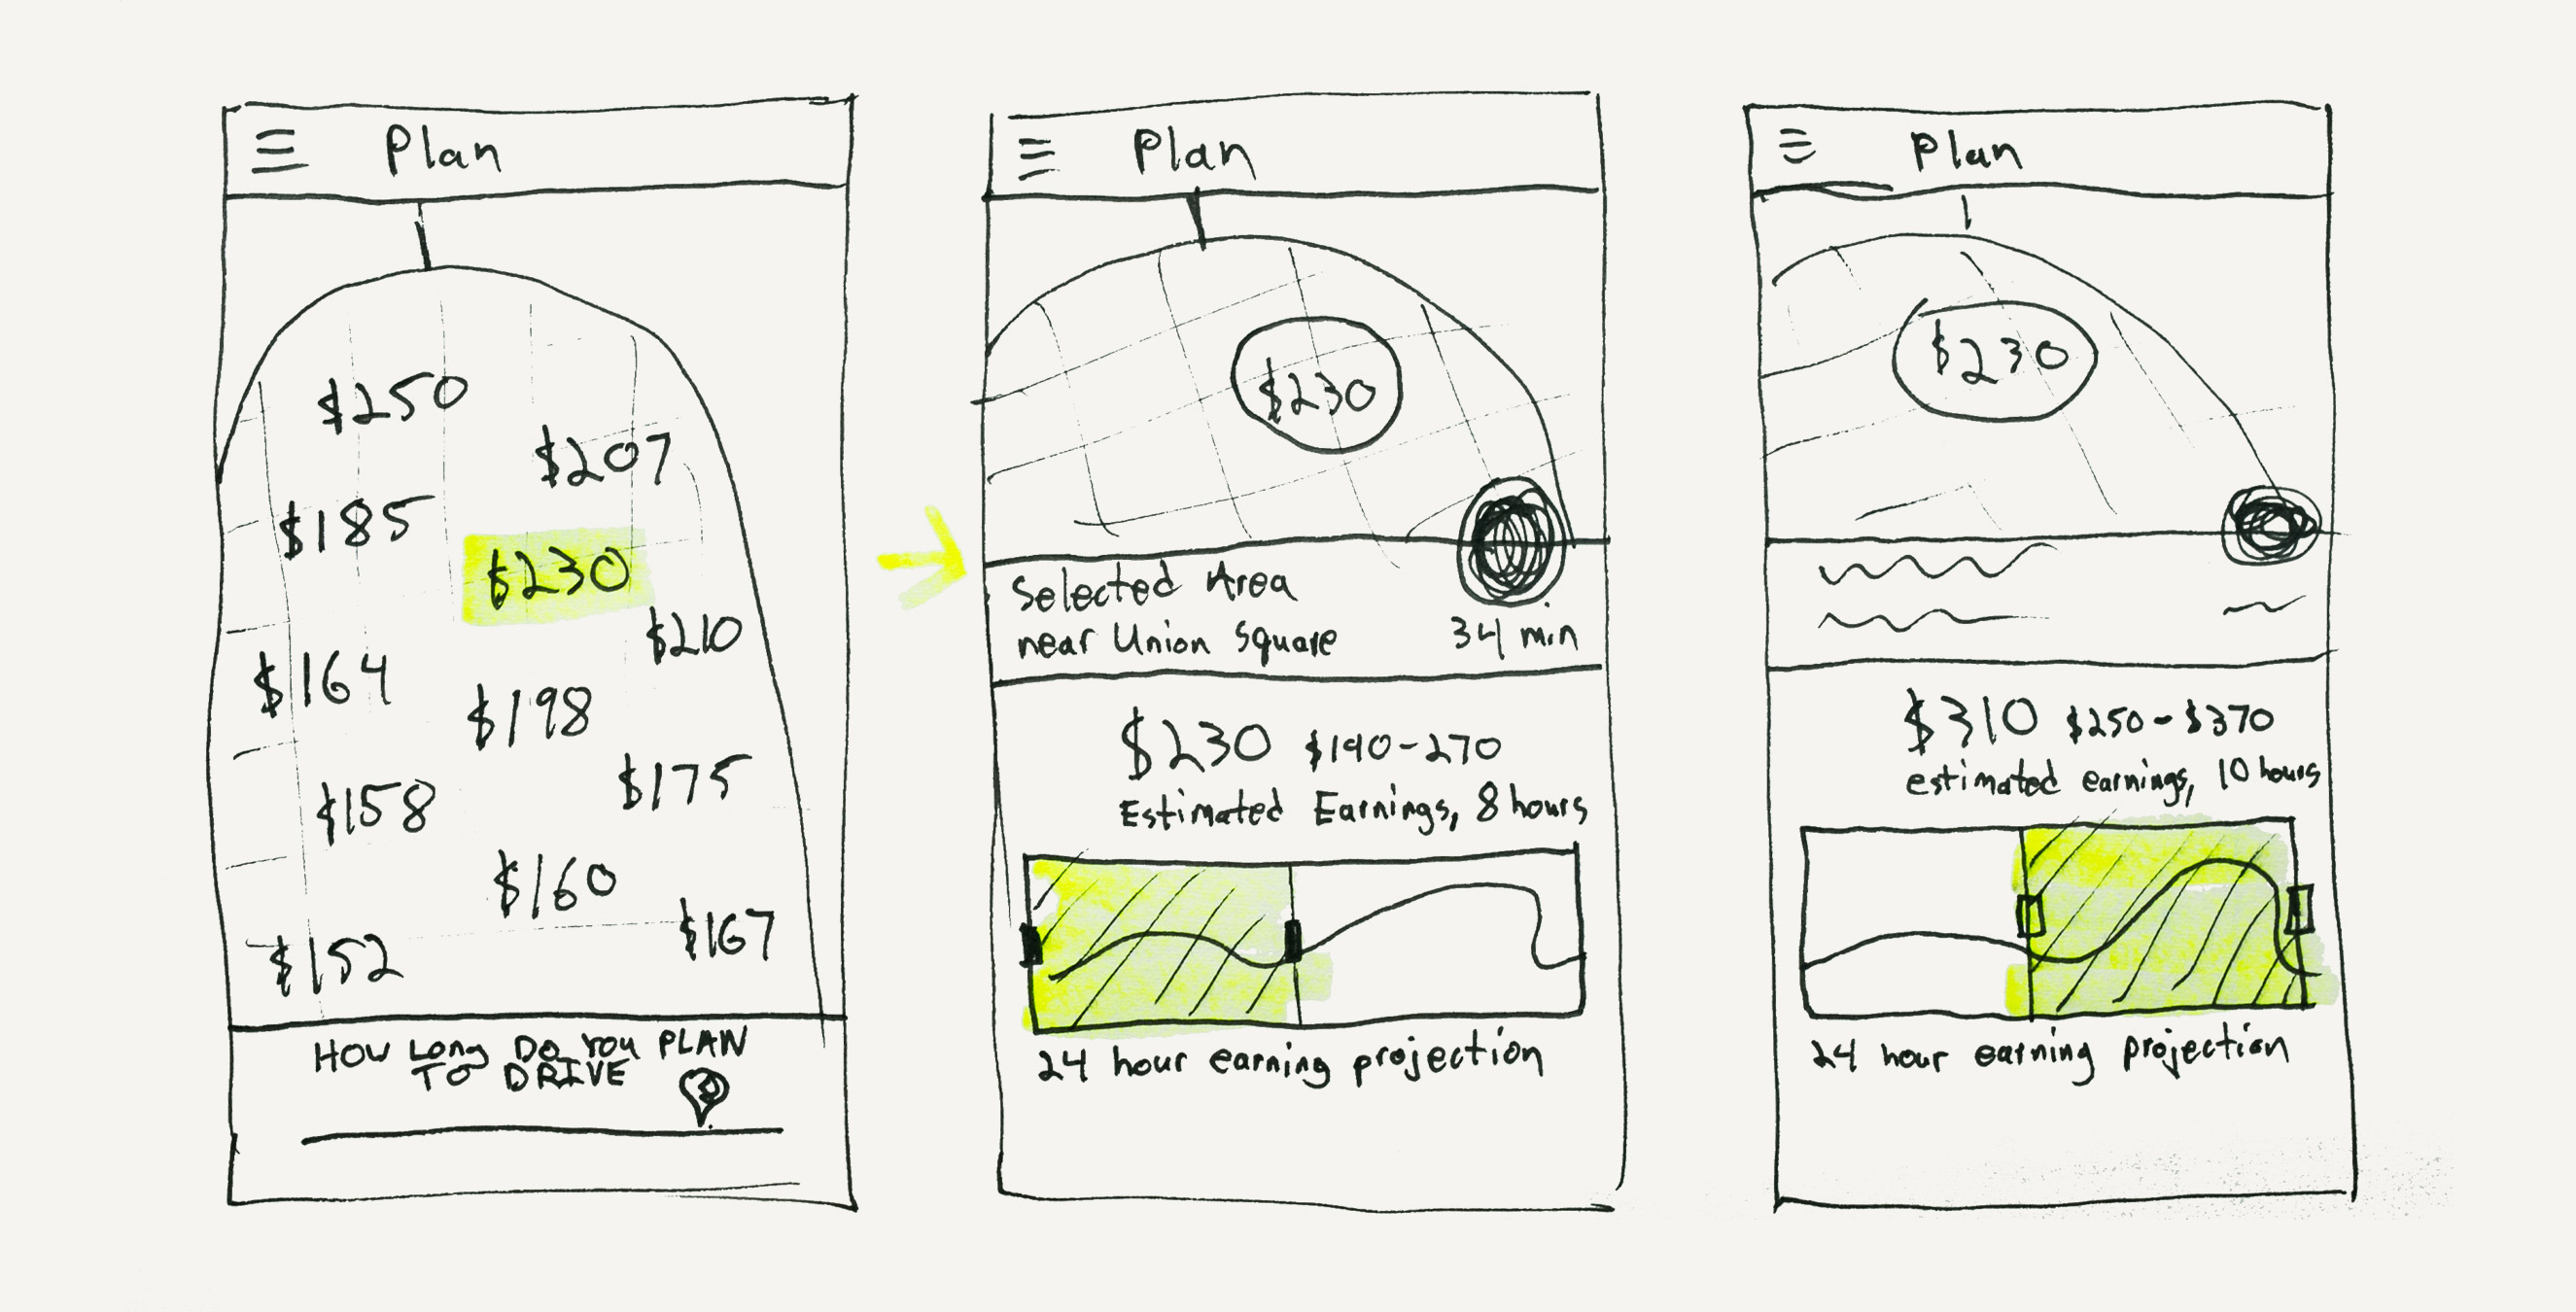 Plan
$250
$207
$185
$230
$210
$164
$198
$175
$158
$160
$167
$152
HOW Long Do You PLAN
TO DRIVE
Plan
$230
Selected Area
near Union Square
34 min
$230 $190-270
Estimated Earnings, 8 hours
24 hour earning projection
Plan
$230
$310 $250-$370
estimated earnings, 10 hours
24 hour earning projection